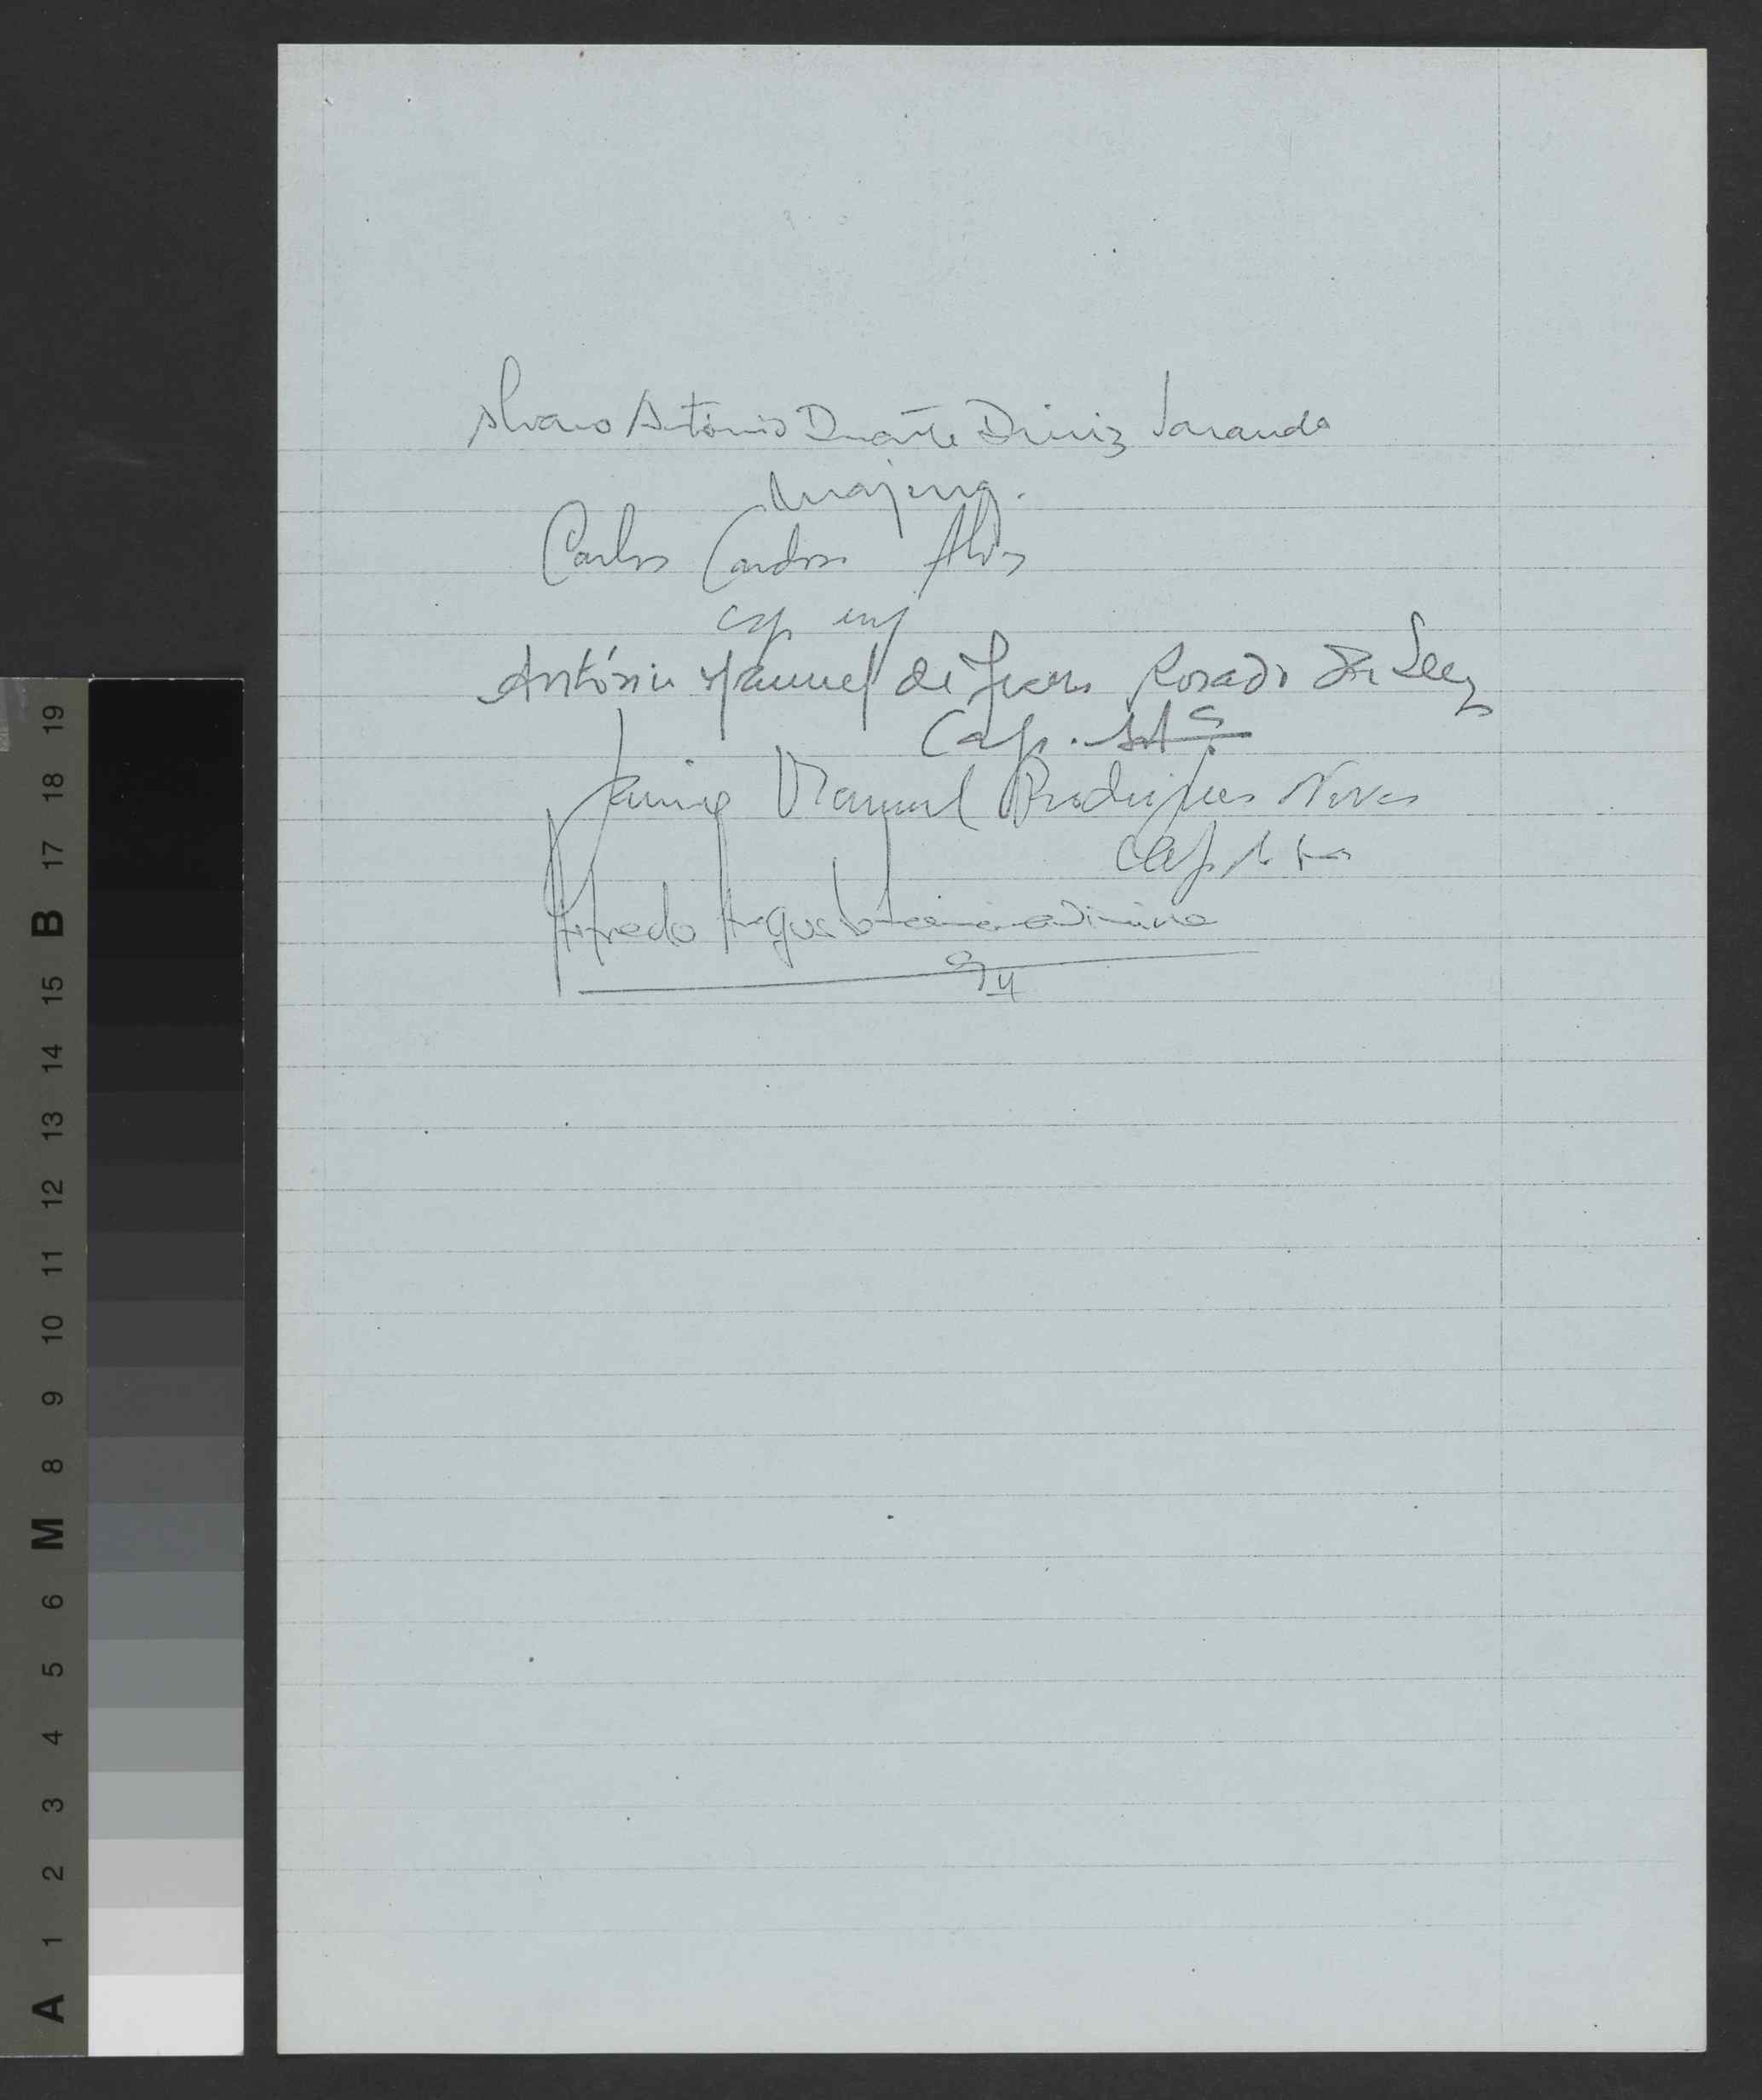 Alvaro António Duarte Diniz Varanda
Maj eng.
Carlos Cardoso Alves
cap inf
António Manuel de Rosado da Luz
Cap. Art.
Jaime Manuel Rodrigues Neves
Cap
Alfredo Augusto
19
18
17
B
15
14
13
12
11
10
9
8
M
6
5
4
3
2
1
A